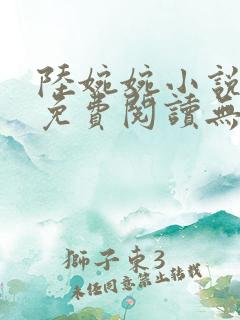 陸婉婉小說
免費閱讀無
獅子東3
未任同意禁止转载